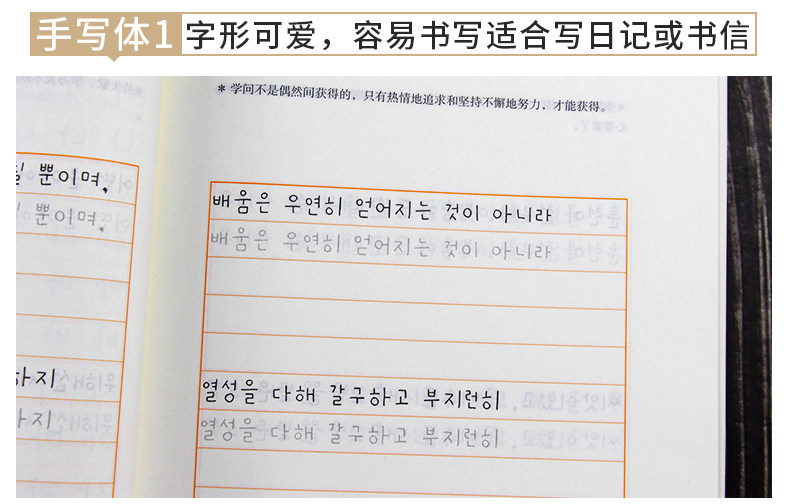 手写体1 字形可爱，容易书写适合写日记或书信
* 学问不是偶然间获得的，只有热情地追求和坚持不懈地努力，才能获得。
뿐이며,
뿐이며,
하지
하지
배움은 우연히 얻어지는 것이 아니라
배움은 우연히 얻어지는 것이 아니라
열성을 다해 갈구하고 부지런히
열성을 다해 갈구하고 부지런히